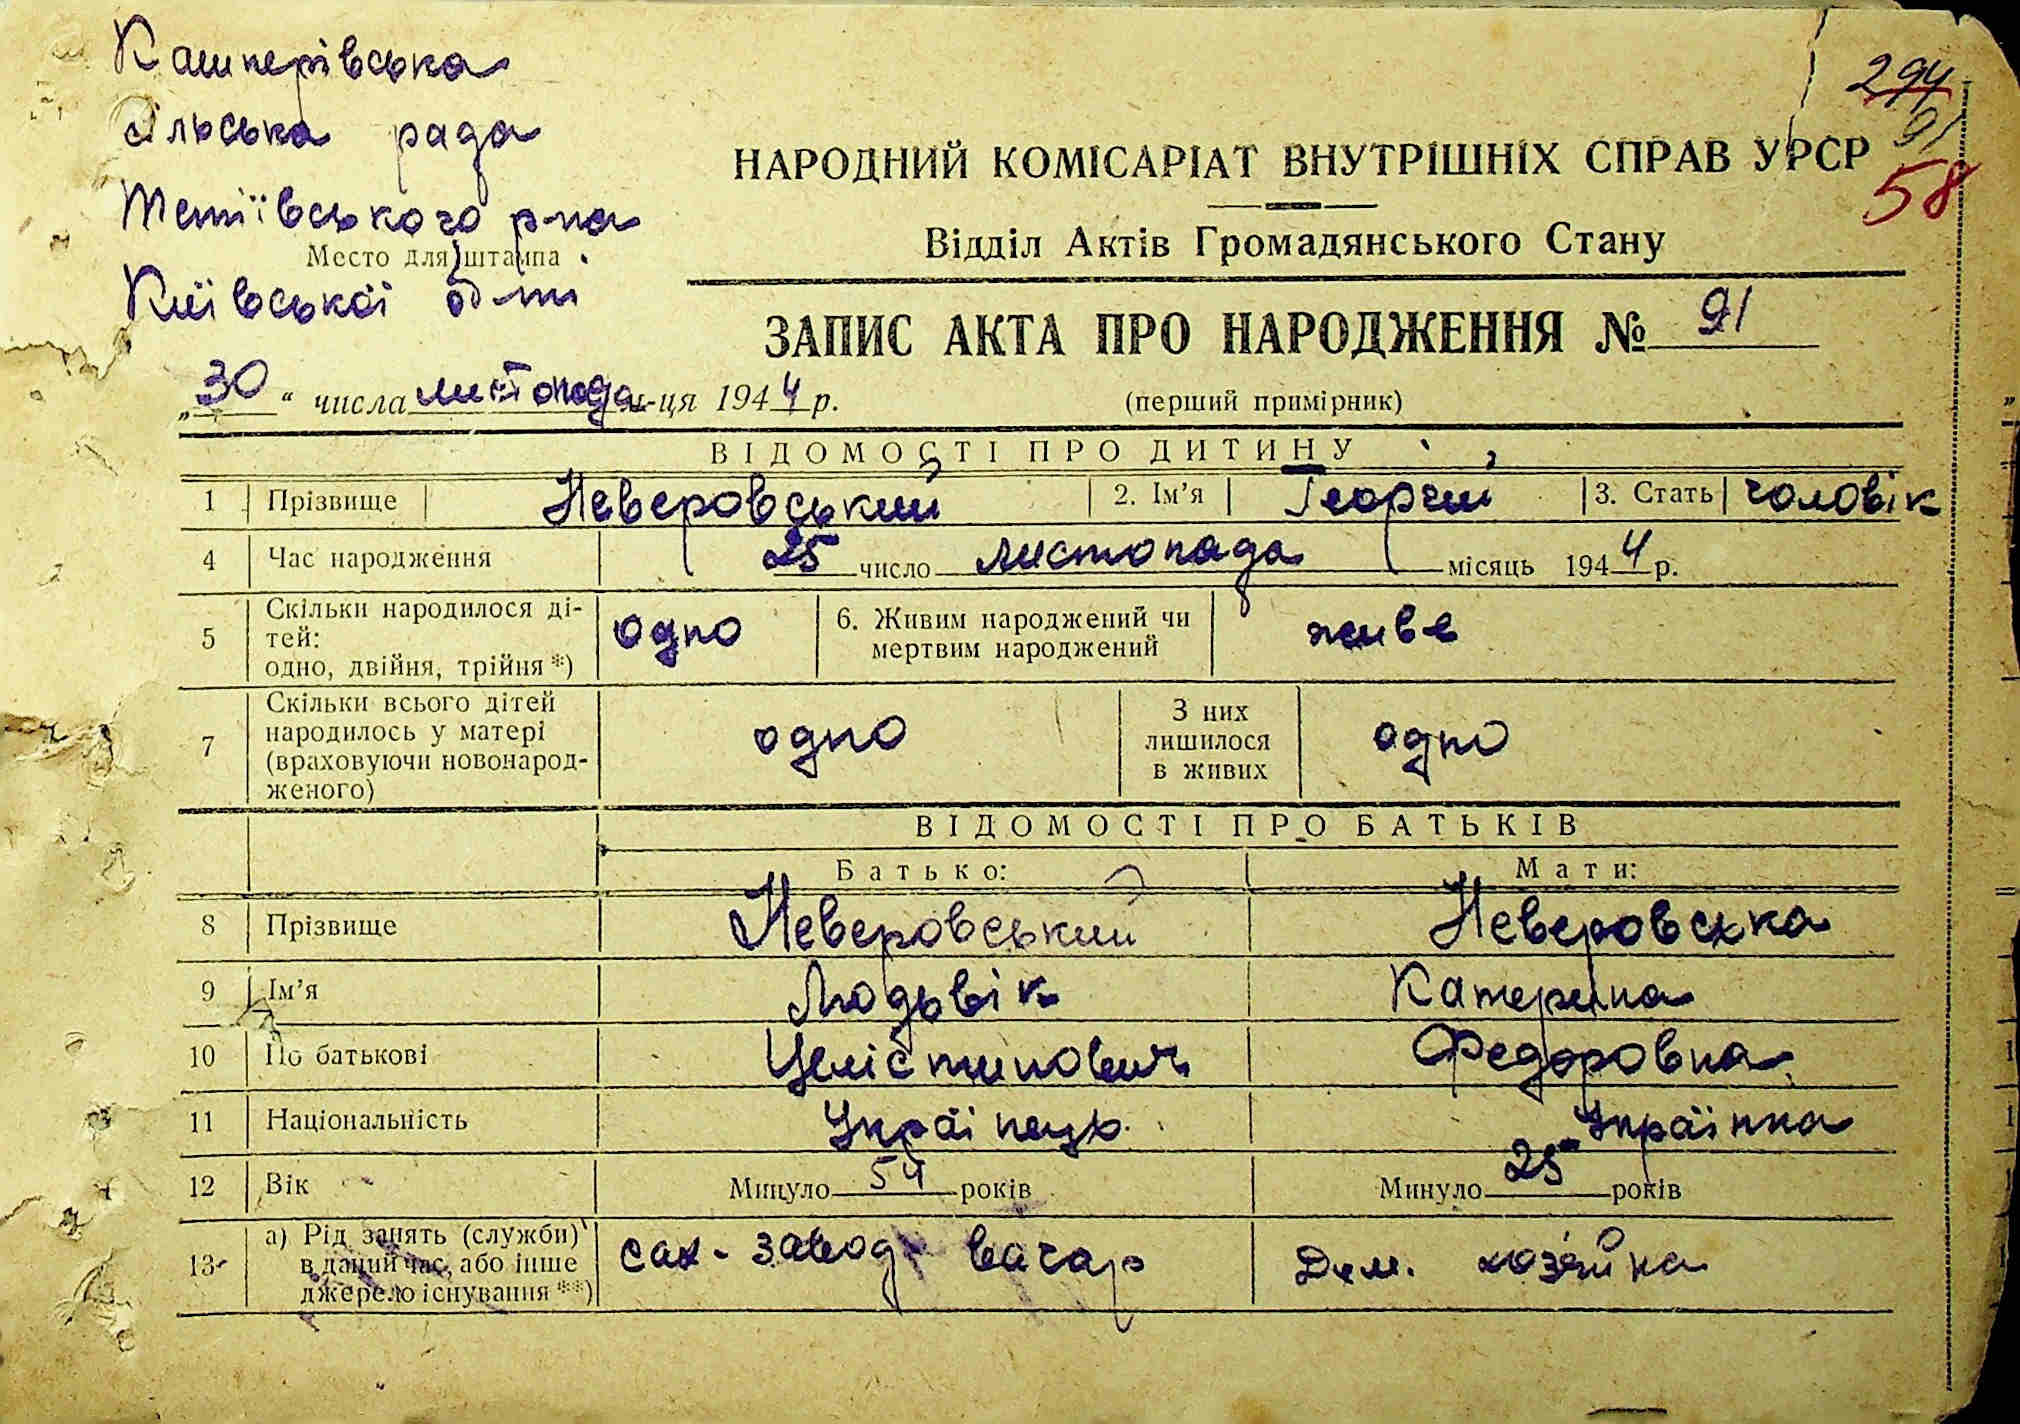 Кашперівська
сільська рада
Тетіївського р-на
Место для штампа
Київської обл-ті
294
91
58
НАРОДНИЙ КОМІСАРІАТ ВНУТРІШНІХ СПРАВ УРСР
Відділ Актів Громадянського Стану
ЗАПИС АКТА ПРО НАРОДЖЕННЯ № 91
„30“ числа листопада м-ця 1944 р.
(перший примірник)
ВІДОМОСТІ ПРО ДИТИНУ
1 Прізвище Неверовський 2. Ім’я Георгій 3. Стать чоловік
4 Час народження 25 число листопада місяць 1944 р.
5 Скільки народилося ді-
тей:
одно, двійня, трійня *) одно 6. Живим народжений чи
мертвим народжений живе
7 Скільки всього дітей
народилось у матері
(враховуючи новонарод-
женого) одно З них
лишилося
в живих одно
ВІДОМОСТІ ПРО БАТЬКІВ
Батько: Мати:
8 Прізвище Неверовський Неверовська
9 Ім’я Людьвік Катерина
10 По батькові Целістинович Федоровна
11 Національність Українець Українка
12 Вік Минуло 54 років Минуло 25 років
13 а) Рід занять (служби)
в даний час, або інше
джерело існування **) сах-завод вагар Дом. хозяйка